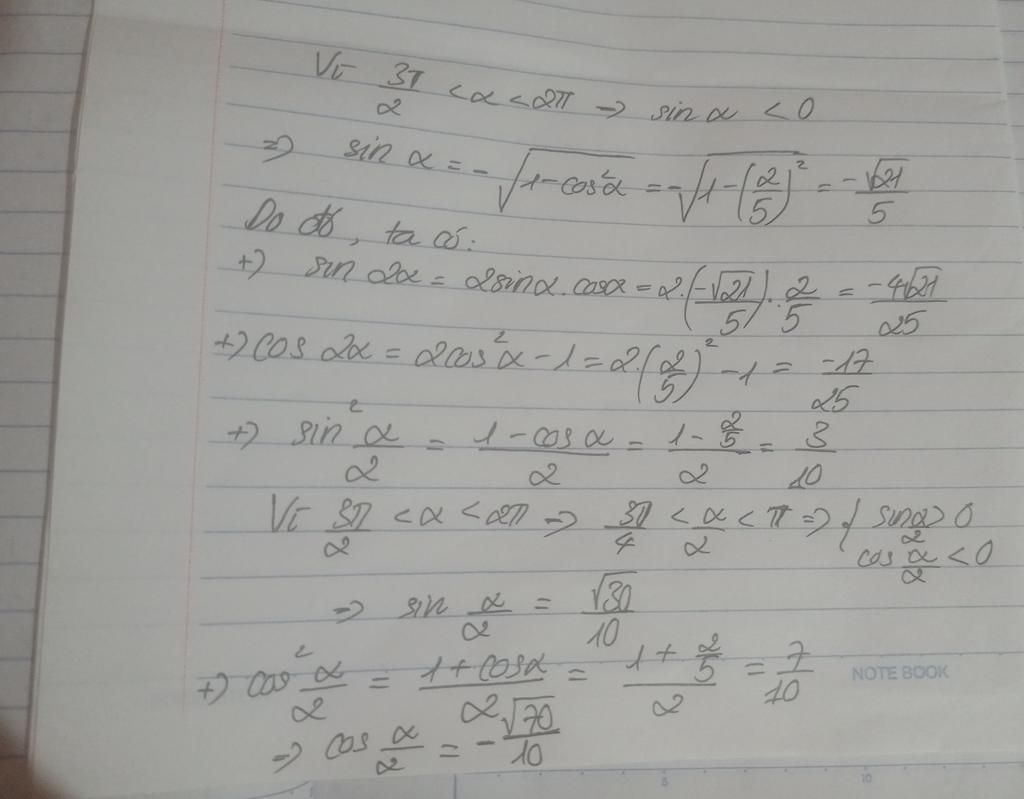 Vì 3π/2 < α < 2π → sin α < 0
⇒ sin α = -√(1-cos²α) = -√(1-(2/5)²) = -√21/5
Do đó, ta có:
+) sin 2α = 2sinα.cosα = 2.(-√21/5).2/5 = -4√21/25
+) cos 2α = 2cos²α - 1 = 2.(2/5)² - 1 = -17/25
+) sin² α/2 = (1-cos α)/2 = (1-2/5)/2 = 3/10
Vì 3π/2 < α < 2π ⇒ 3π/4 < α/2 < π ⇒ { sin α/2 > 0
cos α/2 < 0
⇒ sin α/2 = √30/10
+) cos² α/2 = (1+cosα)/2 = (1+2/5)/2 = 7/10
NOTE BOOK
⇒ cos α/2 = -√70/10
5 10